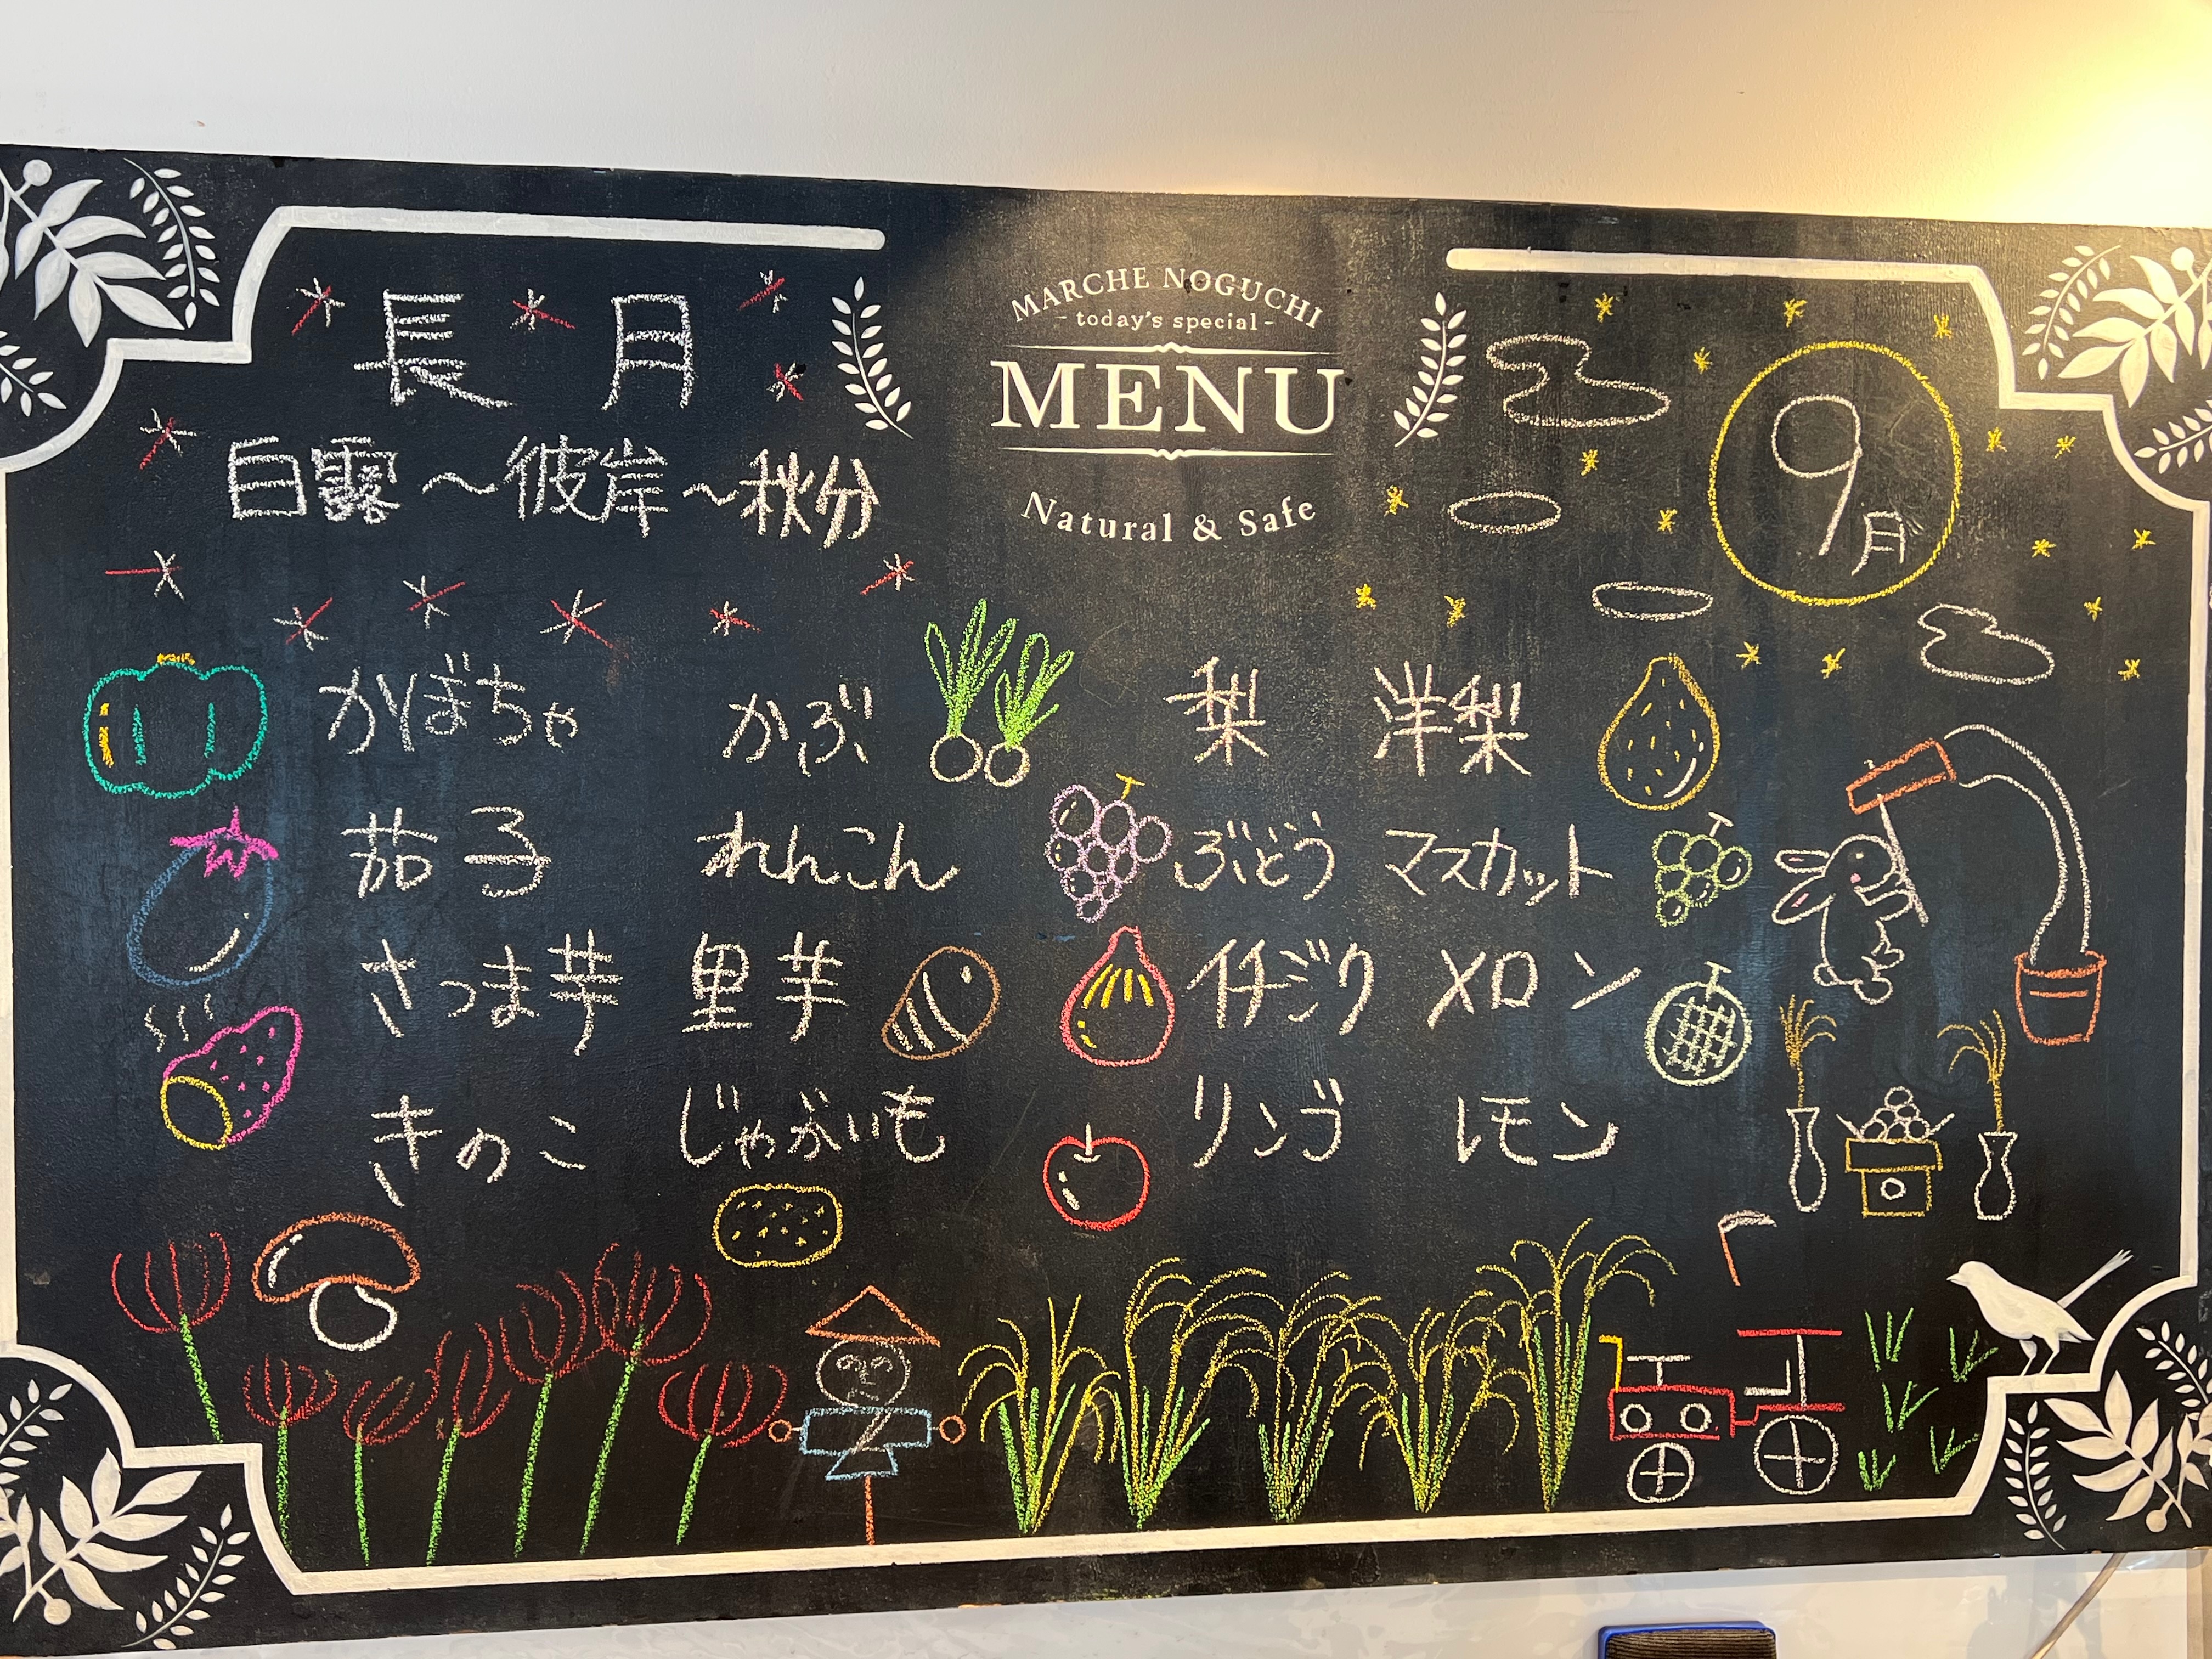 長月
白露～彼岸～秋分
MARCHE NOGUCHI
- today's special -
MENU
Natural & Safe
9月
かぼちゃ かぶ 梨 洋梨
茄子 れんこん ぶどう マスカット
さつま芋 里芋 イチジク メロン
きのこ じゃがいも リンゴ レモン